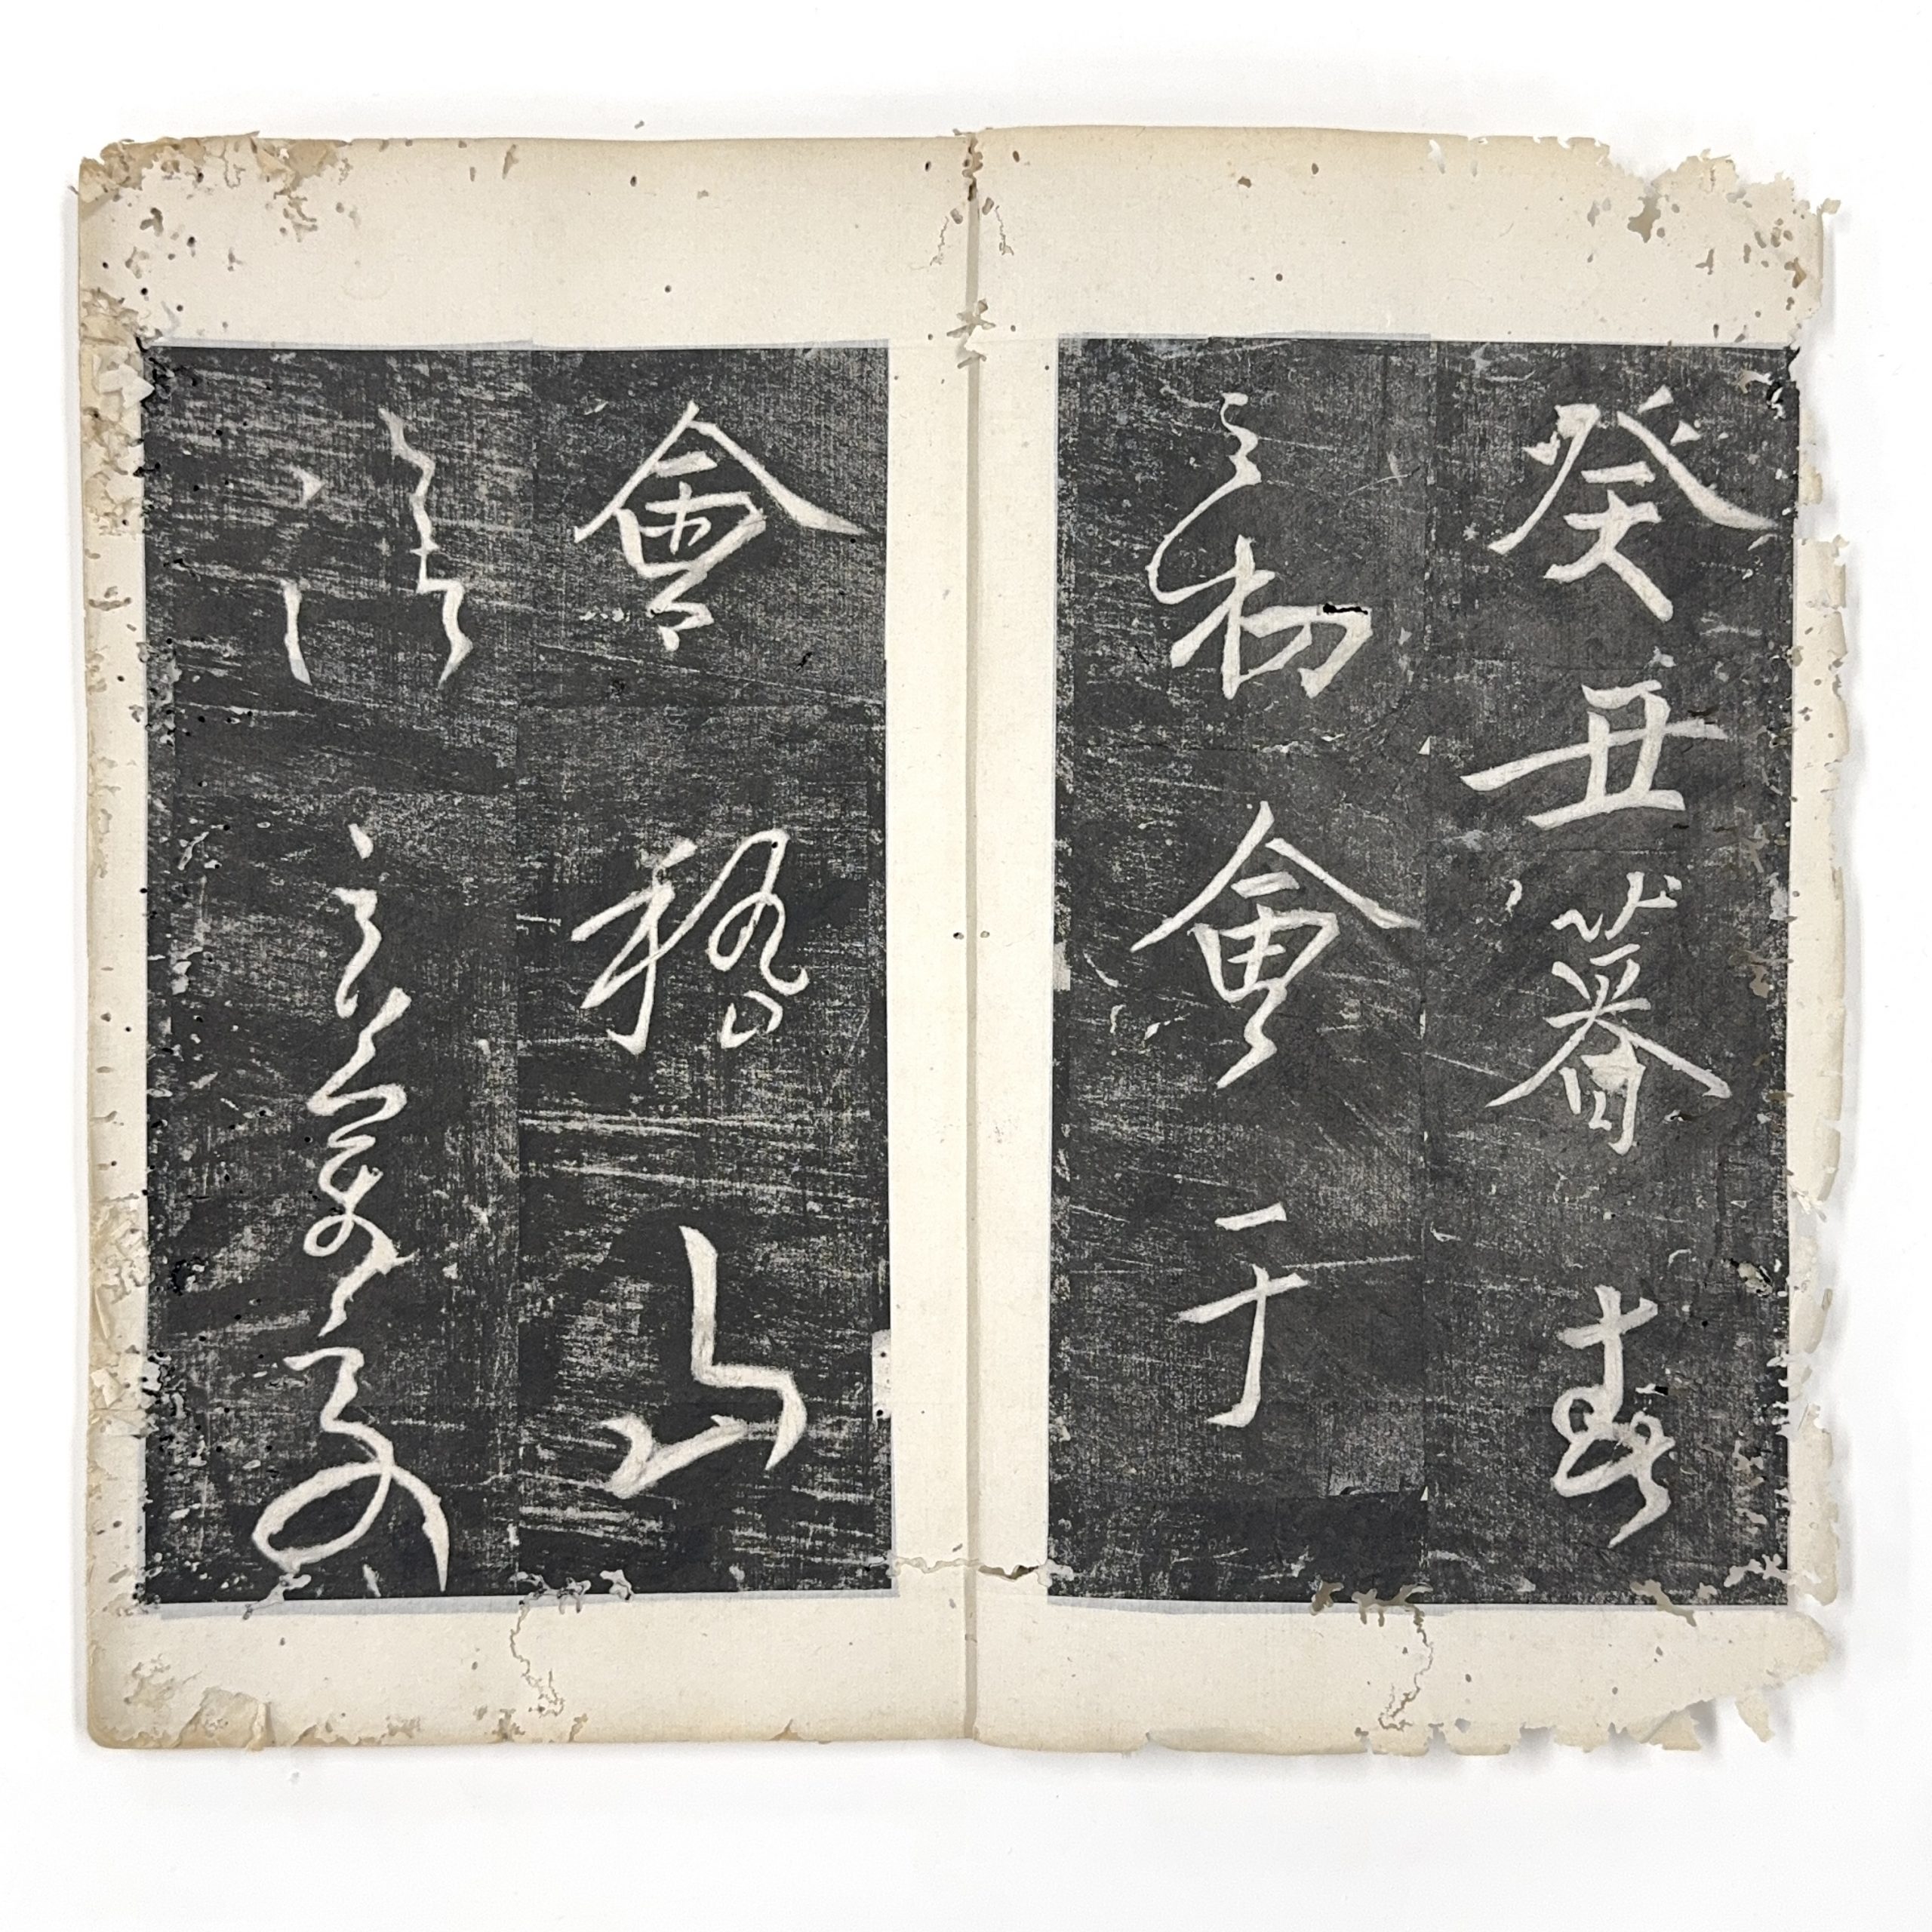 癸丑暮春
之初會于
會稽山
陰之蘭亭